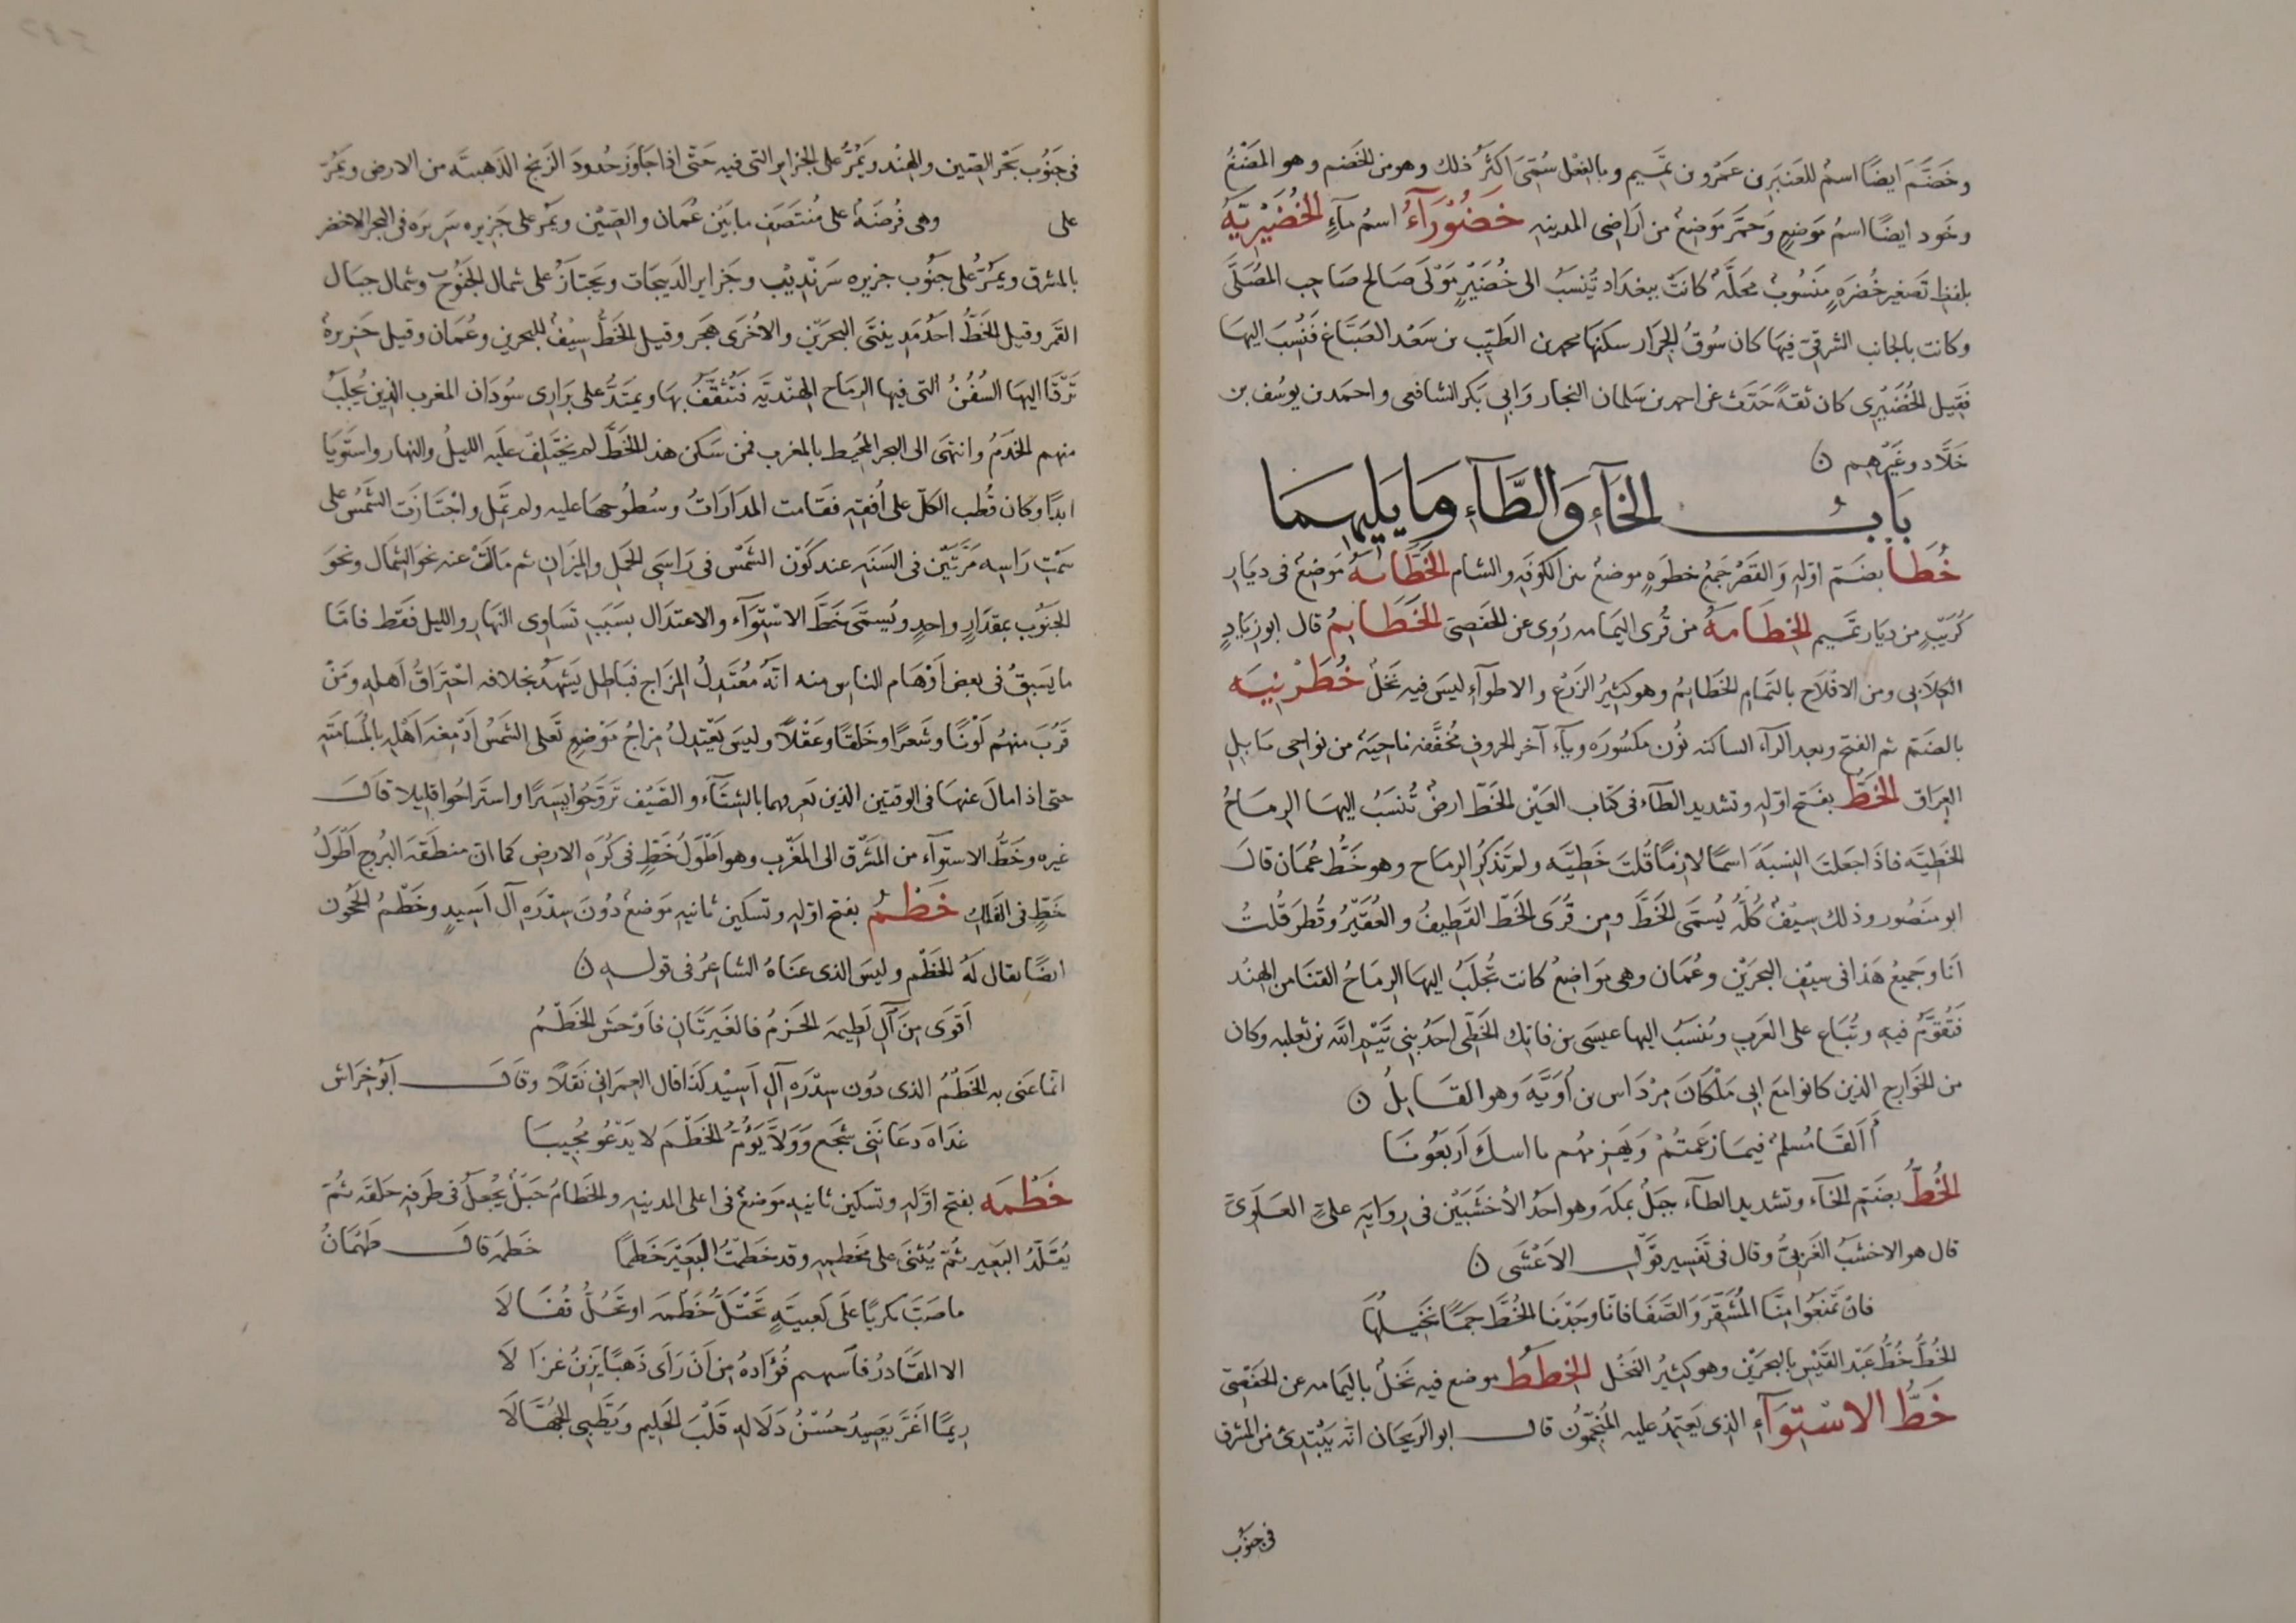 وخَضَّمَ ايضًا اسمُ للعَنبَرِ بن عَمْرو بن تَميم وبالفِعْل سُمِّىَ اكثَرُ ذلك وهو من الخَضم وهو المَضْغُ
وخَود ايضًا اسمُ مَوضعٍ وَحَمَّر مَوضِعُ من اَرَاضِى المدينه خَضُوْرَآءُ اسمُ مآءٍ الخُضَيْرِيَّه
بلفظ تَصغير خُضرَهٍ مَنسُوبُ محَلَّهُ كانَتْ ببغدَاد تُنسَبُ الى خُضَيْرٍ مَوْلَى صَالح صَاحِب المصَلَّى
وكانت بالجانب الشرقىّ فيهَا كان سُوقُ الجِرَار سكنهَا محمد بن الطَيِّب بن سَعْد الصَبَّاغ فَنُسِبَ اليهَا
فقيل الخُضَيْرى كان ثقَهً حَدَثَ عن احمد بن سَلمان النجار وَابى بَكر الشافعى واحمَد بن يوسُف بن
خَلَّاد وغَيْرهم ن
بَابُ الخآءِ وَالطَّآءِ وَمَا يَليهِمَا
خُطَا بضَمّ اوّلهِ وَالقَصْر جَمعُ خطوَهٍ موضعُ بين الكوفَهِ والشام الخَطَّابَهُ مَوضِعُ فى ديَارِ
كُرَيْبٍ من ديَار تَميم الخِطَامَهُ من قُرى اليَمامه رُوِى عن الحَفصىّ الخَطَايمُ قال ابو زِيَادٍ
الكِلَابى ومن الافلَاح باليَمَامه الخَطَايمُ وهو كثيرُ الزَرْع والاطوآءِ ليسَ فيه نَخلُ خُطَرْنِيَه
بالضَمّ ثم الفتح وبعد الرآء الساكنه نُون مكسُورَه ويآء آخر الحروفِ مُخَفَّفه ناحِيَهُ من نواحى بَابِلِ
العِرَاقِ الخَطُّ بفَتح اوّلهِ وتشديد الطآء فى كتاب العَيْن الخَطّ ارضُ تُنسَبُ اليهَا الرِمَاحُ
الخَطّيَه فاذَا جعَلتَ النِسبَهَ اسمًا لازمًا قُلتَ خَطِيَّه ولم تَذكُرُ الرِمَاح وهو خَطُّ عُمَان قالَ
ابو منصُور وذلك سِيْفُ كُلُّهُ يُسَمَى الخَطَّ ومِن قُرَى الخَطّ القَطِيفُ والعُقَيْرُ وقُطَر قُلتُ
اَنَا وجَميعُ هَذا فى سِيْفِ البَحرَيْن وعُمَان وهى مَوَاضِعُ كانت تُجلَبُ اليهَا الرِمَاحُ القنَا من الهِنْد
فَتُقَوَّمُ فيهِ وتُبَاع على العَرَب ويُنسَبُ اليها عيسَى بن فاتِك الخَطّى احَدُ بنى تَيْم الله بن ثعلبه وكان
من الخَوَارِج الذين كانوا مَعَ ابى بلال مِرْدَاس بن اُدَيَّهَ وهو القَايِلُ ن
أَاَلفَا مُسلمُ فيمَا زَعَمتُمْ وَيَهزِمُهم باسكَ اَربَعُونَا
الخُطُّ بضَمّ الخآء وتشديد الطآء جبَلُ بمكهَ وهو احَدُ الأخشَبَيْن فى رِوَايَهِ علىّ العَلَوىّ
قال هو الاخشبُ الغَربىُّ وقال فى تَفسِيرِ قَوْلِ الاَعْشَى ن
فانْ تَمنَعُوا مِنَّا المُشَقَّرَ وَالصَفَا فانّا وجَدْنَا الخُطَّ جمًّا نَخِيلُهَا
الخُطُّ خُطُّ عَبْد القَيْسِ بالبحرَيْن وهو كثيرُ النخْل الخطَطُ موضع فيه نَخلُ باليَمامه عن الحَفْصىّ
خَطُّ الاسْتِوَآءِ الذى يَعتَمِدُ عليه المُنَجّمُونَ قالَ ابو الرَيحَان انّه يَبْتَدِئ من المشرق
فى جنوب
فى جَنُوب بَحْر الصّين والهِنْد ويَمُرُّ على الجزاير التى فيه حَتّى اذا جَاوَزَ حُدودَ الزَنج الذَهبيَّه من الارض ويَمُرّ
على وهى فُرضَهُ على مُنتَصَفِ مَا بَيْن عُمَان والصّيْن ويَمُرّ على جَزيره سَرِيرَه فى البحر الاخضر
بالمشرق ويَمُرُّ على جنُوب جزيره سَرَنْدِيْب وجَزاير الدَيبَجات ويَجتازُ على شمال الجَنُوح وشمال جبَال
القَمَر وقيل الخَطُّ احَدُ مَدِينتَى البحرَيْن والاُخرَى هَجَر وقيل الخَطُّ سِيْفُ للبحرين وعُمَان وقيل جَزِيرهُ
تَرْفَا اليهَا السُفُنُ التى فيها الرِمَاح الهِنديَّه فَتُثَقَّفُ بهَا ويمتَدُّ على برَارِى سُودَان المغرب الذين يُجلَبُ
منهم الخدَمُ وانتهَى الى البحر المُحيط بالمغرب فمن سَكن هذا الخَطَّ لم يَختَلِفْ علَيه الليلُ والنهار واستَوَيَا
ابدًا وكان قُطب الكلّ على اُفقِهِ فقَامت المدَارَاتُ وسُطُوحهَا عليه ولم تَمِل واجْتَازَت الشَمْسُ على
سَمْتِ رَاسِه مَرَّتَيْن فى السَنَهِ عند كَوْن الشَمْس فى رَاسَىِ الحَمَلِ والميزَانِ ثم مَالَتْ عنه نحوَ الشِمَال ونحوَ
الجَنُوبِ بمقدَارٍ واحدٍ ويُسَمَّى خَطَّ الاسْتِوَآء والاعتدَال بسَبَبِ تَسَاوِى النَهَارِ والليل فقَط فامَّا
ما يَسبِقُ فى بعضِ اَوْهَام الناس منه انّهُ مُعْتَدِلُ المِزَاج فبَاطل يَشهَدُ بخلافه احْتِرَاقُ اَهلِهِ ومَنْ
قَرُبَ منهُم لَوْنًا وشَعرًا وخَلقًا وعَقْلًا وليس يَعْتدِلُ مِزاجُ مَوْضِعٍ تَغلى الشَمْسُ اَدْمِغَهَ اَهْلِهِ بالمُسَامَتَهِ
حتى اذا مالَ عنهَا فى الوقتين الذين نَعرِفهما بالشِتَآء والصَيْف تَرَوَّحُوا يَسِيرًا واستَراحُوا قليلا قالَ
غيره وخَطُّ الاستوآء من المَشرِق الى المَغْرِب وهو اَطْوَلُ خَطٍّ فى كُرَهِ الارضِ كما انّ منطَقَهَ البُروج اَطْوَلُ
خَطٍّ فى الفَلَك خَطْمُ بفتح اوّلهِ وتسكين ثانيهِ مَوضعُ دُونَ سِدْرَه آلِ اَسِيدٍ وخَطْمُ الحَجُون
ايضًا يقال لهُ الخَطْم وليس الذى عنَاهُ الشاعِرُ فى قوله ن
اَقوَى مِنَ آلِ لطِيمَه الحَزمُ فالغَيرَتَانِ فاَوْحَشَ الخَطْمُ
انّما عَنى به الخَطْمُ الذى دُون سِدْرَه آلِ اَسِيْد كذَا قال العِمرَانى نَقلًا وقَالَ ابُو خِرَاش
غدَاهَ دعَا بَنى شَجَعٍ وَوَلَّى يَؤُمُّ الخَطْمَ لا يَدْعُو مُجِيبَا
خَطْمَه بفتح اوّلهِ وتسكين ثانيه مَوضعُ فى اعلى المدينه والخَطَامُ حَبَلُ يُجْعلُ فى طَرَفِهِ حَلقَه ثمّ
يُقَلَّدُ البَعير ثُمّ يُثنَى على مَخطِمِه وقد خَطَمْتُ البَعيْرَ خَطمًا خَطمَه قالَ طَهْمَانُ
ما صَبَّ بَكريًّا عَلَى كَعبيَّهٍ تَحْتَلُّ خَطْمَه او تَحُلُّ قُفَالَا
الا المقَادرُ فآسهم فُؤادهُ مِن اَنْ رَاَى ذَهَبًا يَزِنُ غزَالَا
رِيمًا اَغَرَّ يَصِيدُ حُسْنُ دَلَالهِ قَلْبَ الحَلِيم ويَطَّبِى الجُهَّالَا